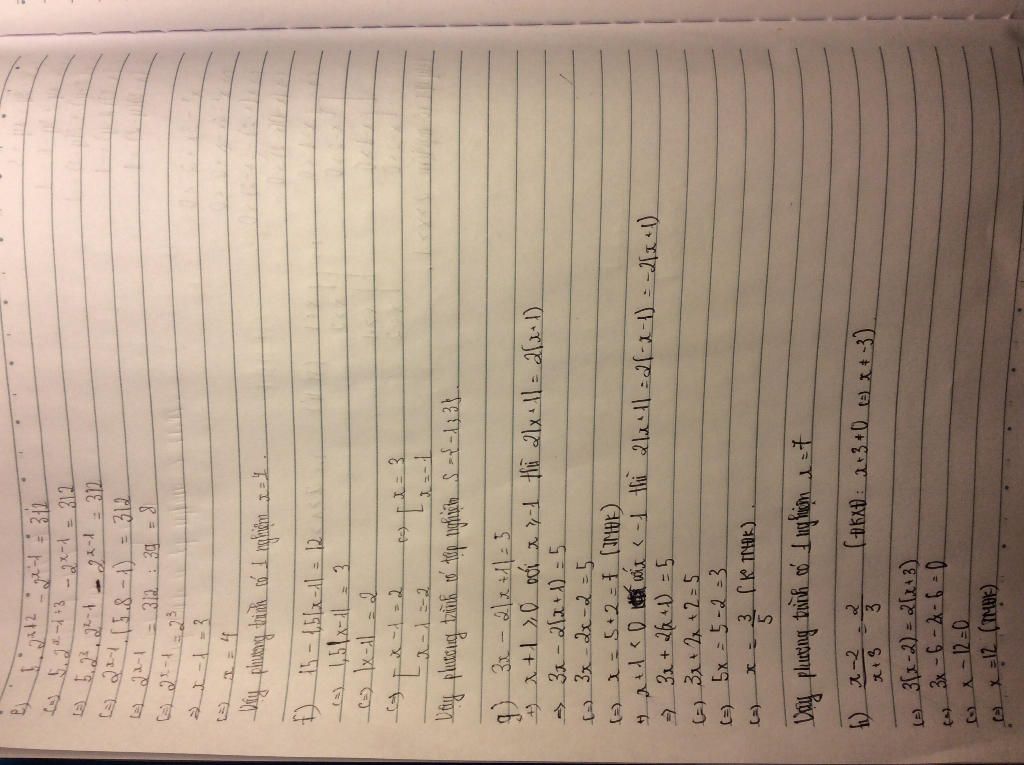 e) 5.2^{x+2} - 2^{x-1} = 312
(=) 5.2^{x-1+3} - 2^{x-1} = 312
(=) 5.2^3.2^{x-1} - 2^{x-1} = 312
(=) 2^{x-1}.(5.8-1) = 312
(=) 2^{x-1} = 312 : 39 = 8
(=) 2^{x-1} = 2^3
=> x-1 = 3
(=) x = 4
Vậy phương trình có 1 nghiệm x=4.
f) 15 - 1,5|x-1| = 12
(=) 1,5|x-1| = 3
(=) |x-1| = 2
(=) [ x-1 = 2 (=) [ x = 3
x-1 = -2 x = -1
Vậy phương trình có tập nghiệm S={-1;3}.
g) 3x - 2|x+1| = 5
+) x+1 ≥ 0 với x ≥ -1 thì 2|x+1| = 2(x+1)
=> 3x - 2(x+1) = 5
(=) 3x - 2x - 2 = 5
(=) x = 5+2 = 7 (TMĐK)
+) x+1 < 0 với x < -1 thì 2|x+1| = 2(-x-1) = -2(x+1)
=> 3x + 2(x+1) = 5
(=) 3x + 2x + 2 = 5
(=) 5x = 5-2 = 3
(=) x = 3/5 (K TMĐK).
Vậy phương trình có 1 nghiệm x=7
h) x-2/x+3 = 2/3 (ĐKXĐ: x+3≠0 (=) x≠-3)
(=) 3(x-2) = 2(x+3)
(=) 3x - 6 - 2x - 6 = 0
(=) x - 12 = 0
(=) x = 12 (TMĐK)